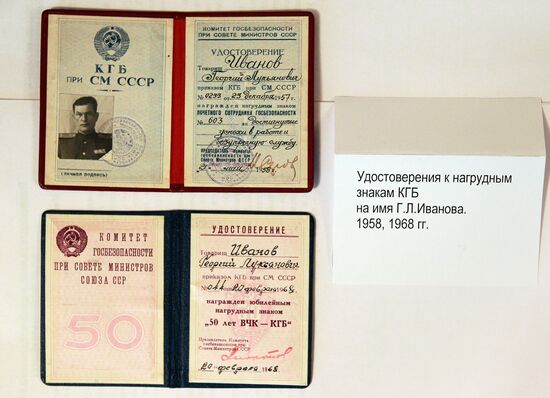 КГБ
ПРИ СМ СССР
(личная подпись)
КОМИТЕТ ГОСБЕЗОПАСНОСТИ
ПРИ СОВЕТЕ МИНИСТРОВ СССР
УДОСТОВЕРЕНИЕ
Товарищ Иванов
Георгий Лукьянович
приказом КГБ при СМ СССР
№ 0233 от 23 декабря 1957 г.
награжден нагрудным знаком
ПОЧЕТНОГО СОТРУДНИКА ГОСБЕЗОПАСНОСТИ
№ 603 за достигнутые
успехи в работе и
безупречную службу.
КОМИТЕТ
ГОСБЕЗОПАСНОСТИ
ПРИ СОВЕТЕ МИНИСТРОВ
СОЮЗА ССР
50
УДОСТОВЕРЕНИЕ
Товарищ Иванов
Георгий Лукьянович
приказом КГБ при СМ СССР
февраля 1968 г.
награжден юбилейным
нагрудным знаком
"50 лет ВЧК—КГБ"
Председатель Комитета
госбезопасности при
Совете Министров СССР
20 февраля 1968.
Удостоверения к нагрудным
знакам КГБ
на имя Г.Л.Иванова.
1958, 1968 гг.